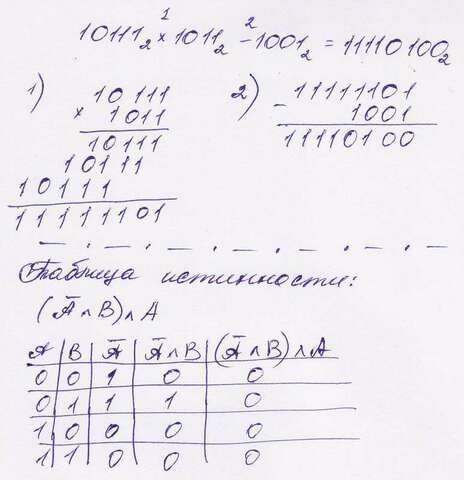 1 2
10111₂ × 1011₂ - 1001₂ = 11110100₂
1) 10111
× 1011
10111
10111
10111
11111101
2) 11111101
- 1001
11110100
Таблица истинности:
(Ā ∧ B) ∧ A
A | B | Ā | Ā ∧ B | (Ā ∧ B) ∧ A
0 | 0 | 1 | 0 | 0
0 | 1 | 1 | 1 | 0
1 | 0 | 0 | 0 | 0
1 | 1 | 0 | 0 | 0